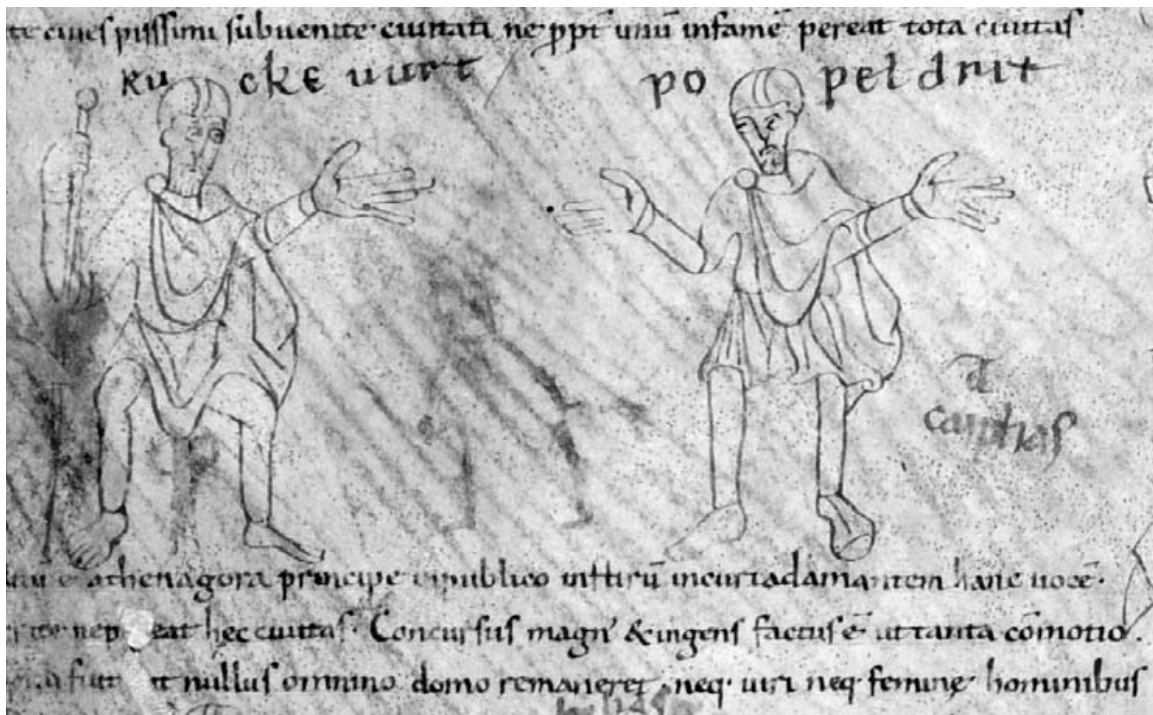 te ciues pissimi subuenite· ciuitati ne ꝓpt̄ unū infamē pereat tota ciuitas·
ru cke uurt po pel drit
caiphas
athenagora principe inpublico missū incurtadamantem hanc uocē·
eat hec ciuitas· Concursus magn' & ingens factus ē ut tanta cōmotio·
nullus omnino domo remaneret· neq· uiri neq· feminę hominibus